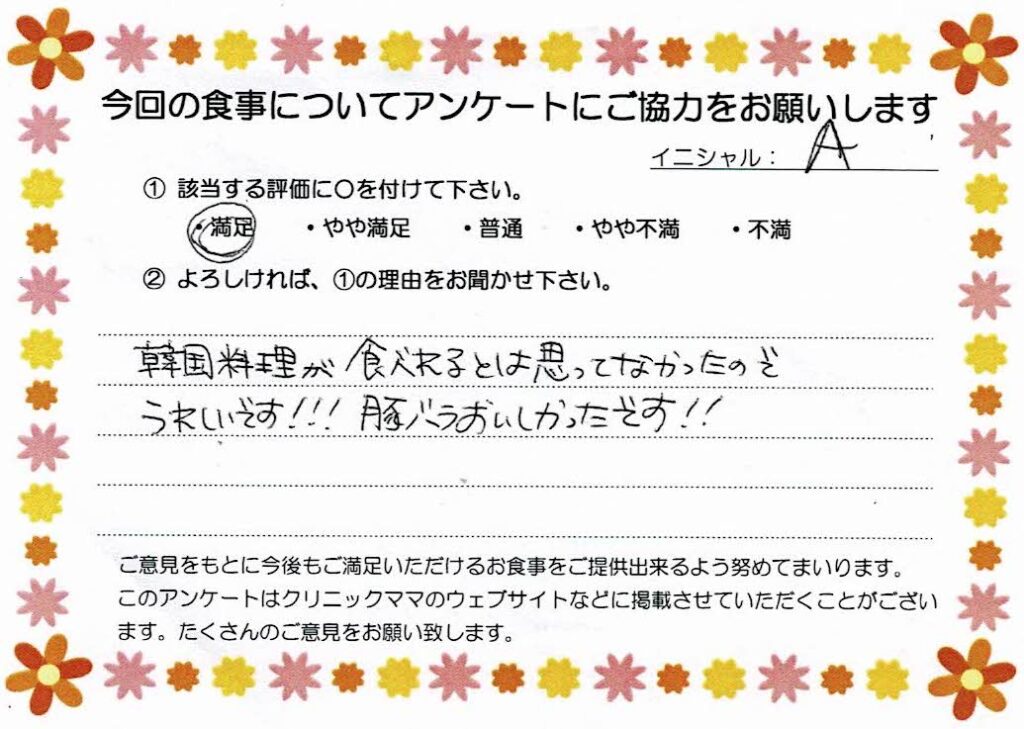 今回の食事についてアンケートにご協力をお願いします
イニシャル： A
① 該当する評価に〇を付けて下さい。
・満足 ・やや満足 ・普通 ・やや不満 ・不満
② よろしければ、①の理由をお聞かせ下さい。
韓国料理が食べれるとは思ってなかったので
うれしいです!!! 豚バラおいしかったです!!
ご意見をもとに今後もご満足いただけるお食事をご提供出来るよう努めてまいります。
このアンケートはクリニックママのウェブサイトなどに掲載させていただくことがござい
ます。たくさんのご意見をお願い致します。